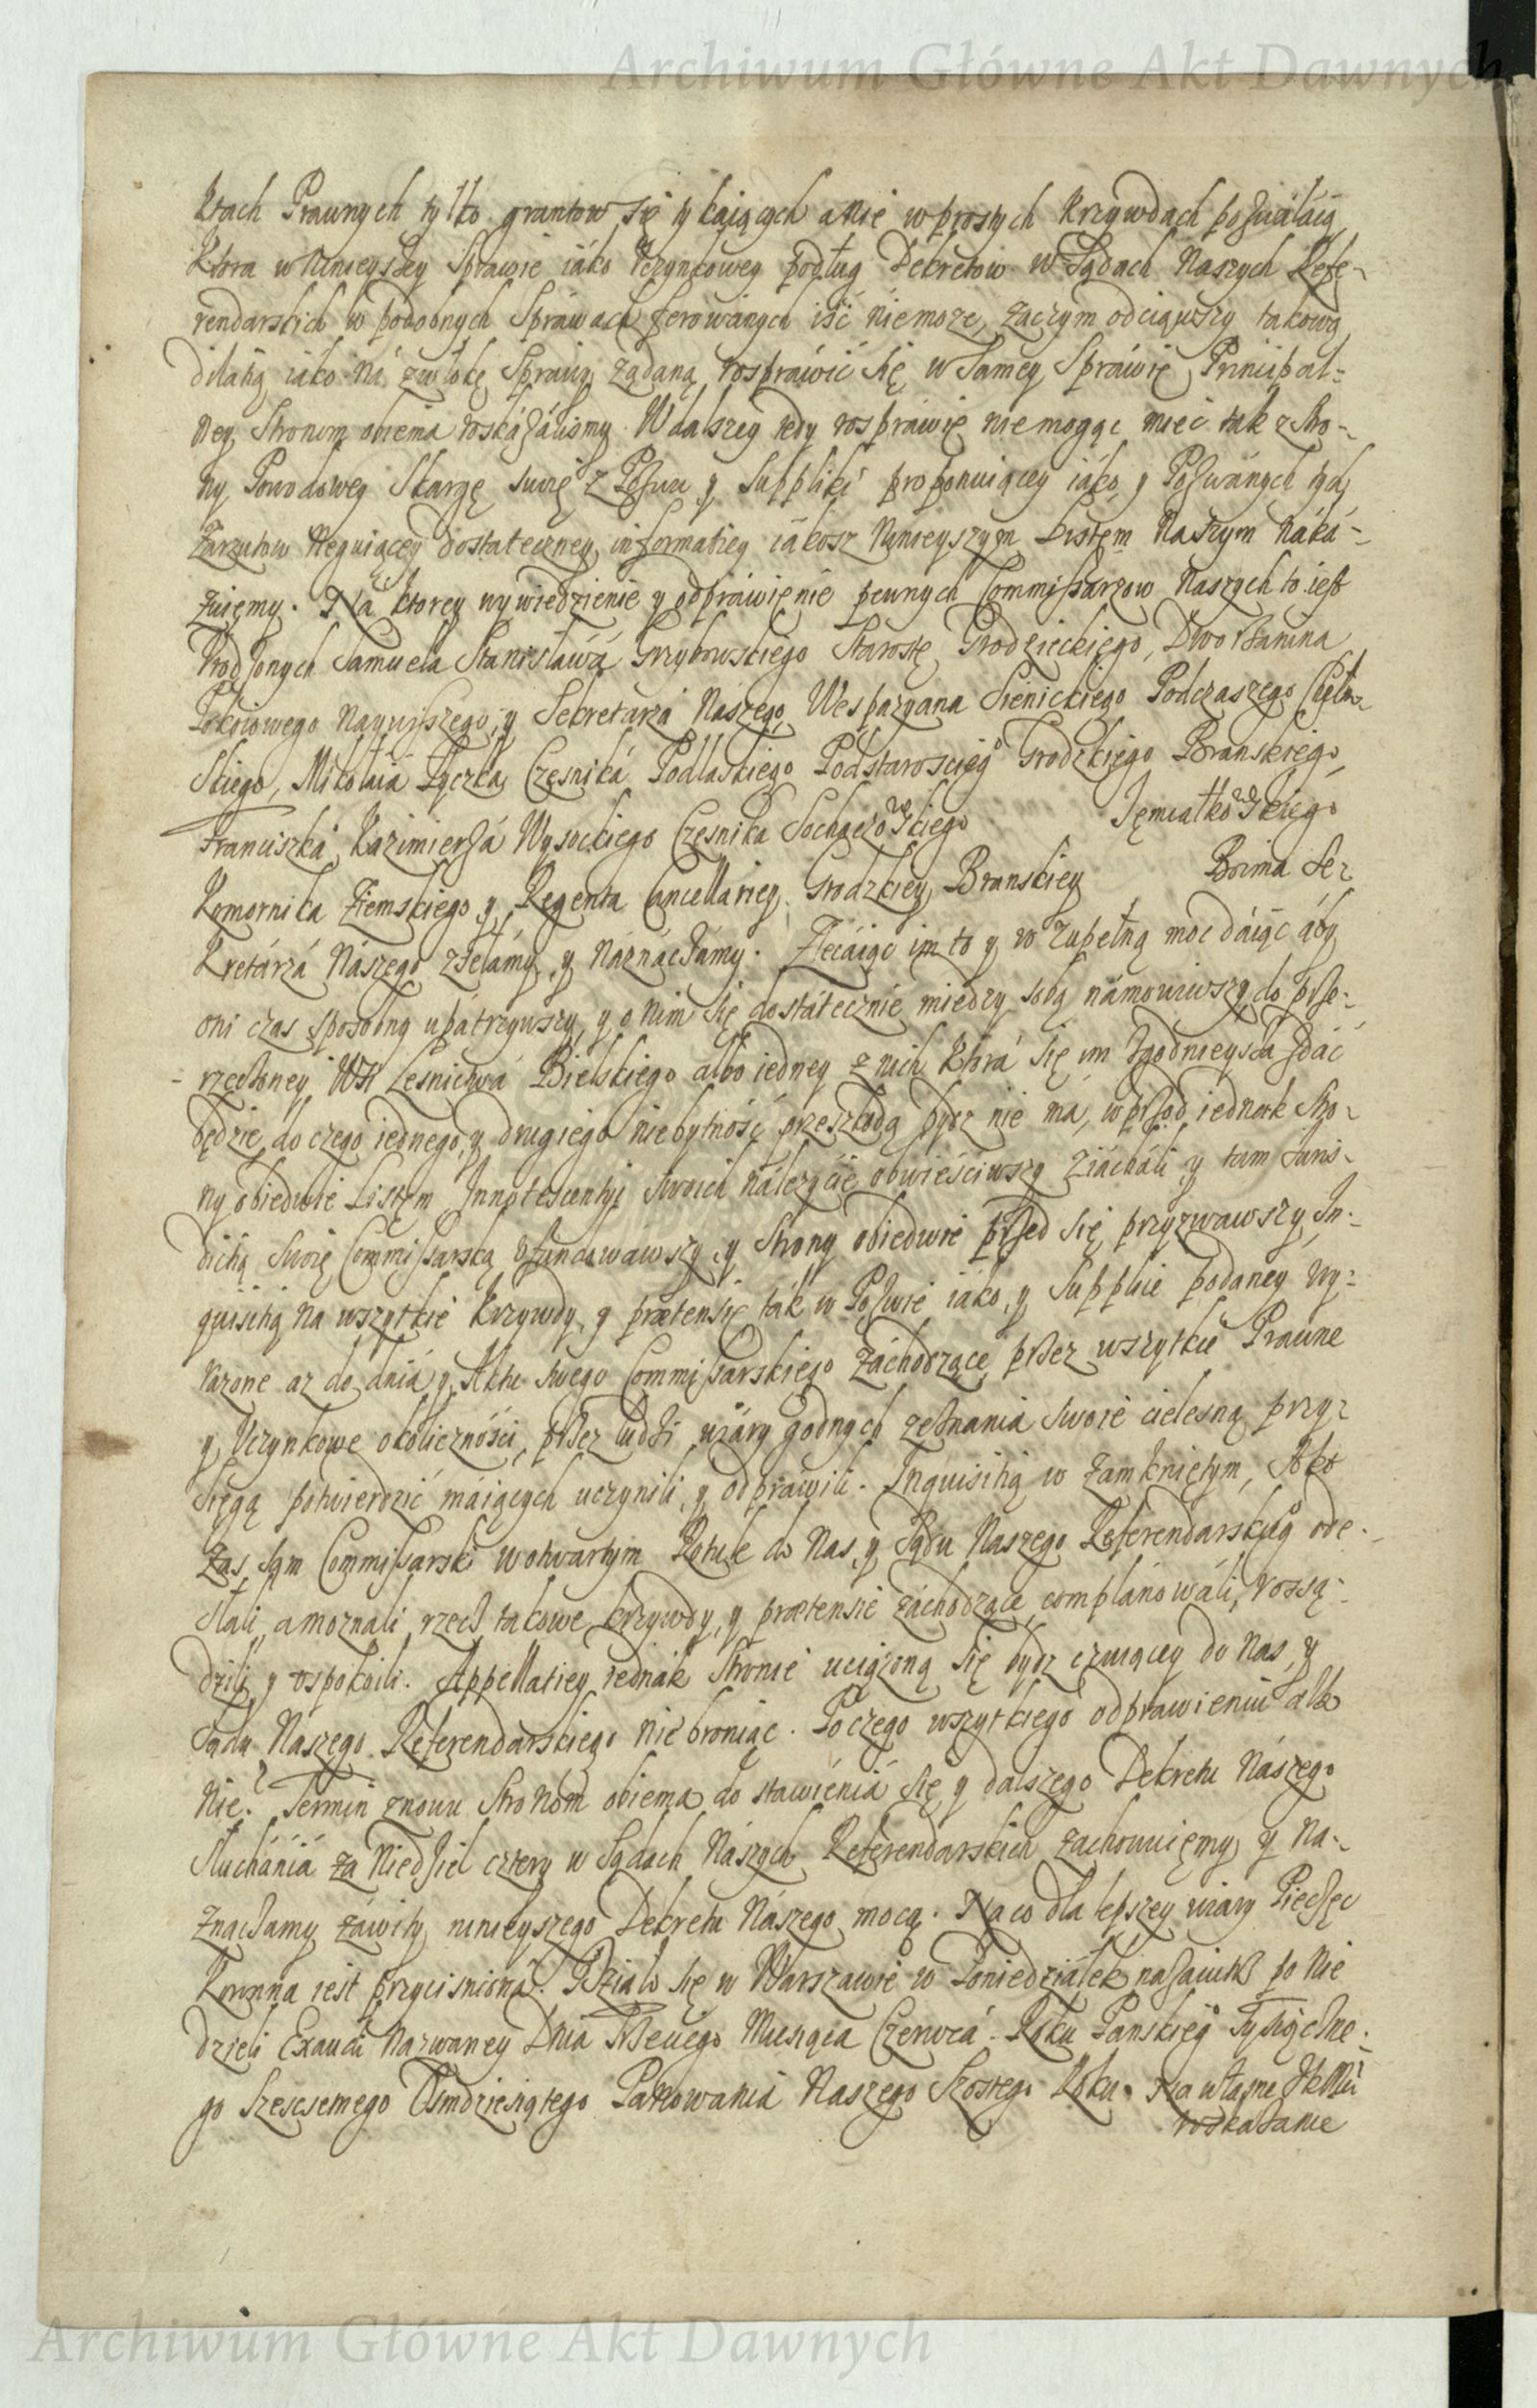 Archiwum Główne Akt Dawnych
ktach Prawnych tylko gruntow się tykaiących a nie w prostych krzywdach pozwalaią
ktora w ninieyszey Sprawie iáko Uczynkowey podług Dekretow w Sądach Naszych Refe-
rendarskich w podobnych Sprawach ferowánych iść niemoze, zaczym odciąwszy takową
dilatią iako ná zwłokę Sprawy ządaną rosprawić się w Samey Sprawie Principal-
ney Stronom obiema roskázálismy. W dalszey tedy rosprawie niemogąc mieć tak z Stro-
ny Powodowey Skargę swoię z Pozwu y Suppliki proponuiącey iáko y Pozwánych tych
Zarzutow neguiącey dostateczney informatiey iákosz Ninieyszym Listem Naszym náká-
zuięmy. Ná ktorey wywiedzienie y odpráwienie pewnych Commissarzow Naszych to iest
Urodzonych Samuela Stanisława Grzybowskiego Starostę Grodzieckiego, Dworzanina
Pokoiowego Naszego, y Sekretarzá Nászego, Wespazyana Sienickiego Podczaszego
skiego, Mikołáiá Łyczka Cześniká Podlaskiego Podstarosciego Grodzkiego Branskiego,
Franciszká Kazimierzá Wysockiego Cześnika Sochaczewskiego Jęmiałkowskiego
Komornika Ziemskiego y Regenta Cancellariey Grodzkiey Branskiey Brima Se-
kretárzá Nászego zsełámy y náznáczámy. Zlecáiąc im to y w zupełną moc dáiąc áby
oni czas sposobny upátrzywszy y o nim się dostátecznie miedzy sobą námowiwszy do prze-
rzeczoney Wsi Lesnictwá Bielskiego albo iedney z nich ktorá się im zgodnieysza zdáć
będzie, do czego iednego y drugiego niebytność przeszkodą bydz nie má, wprzod iednak Stro-
ny obiedwie Listem Innotescentyi swoich nálezycie obwieściwszy ziácháli y tam Juris-
dictią swoię Commissarską ufundowáwszy y Strony obiedwie przed się przyzwawszy, In-
quisitią na wszytkie krzywdy y prætensie ták w Pozwie iáko y Supplice podaney wy-
rázone az do dniá y Aktu swego Commissarskiego záchodzące przez wszytkie Prawne
y Uczynkowe okoliczności, przez ludzi wiáry godnych zeznania swoie cielesną przy-
sięgą potwierdzić máiących uczynili y odpráwili. Inquisitią w zamknietym, Akt
zas sąm Commissarski w otwartym Rotule do Nas y Sądu Naszego Referendarskiego ode-
słali, a moznali rzecz takowe krzywdy y prætensie záchodzące complánowáli, rossą-
dzili y uspokoili. Appellatiey iednák Stronie uciązoną się bydz czuiącey do Nas y
Sądu Nászego Referendarskiego nie broniąc. Po czego wszytkiego odprawieniu albo
nie? Termin znowu Stronom obiema do stawieniá się y dalszego Dekretu Nászego
słuchániá za Niedziel cztery w Sądach Nászych Referendarskich záchowuięmy y na-
znaczamy záwity ninieyszego Dekretu Nászego mocą. Na co dla lepszey wiary Pieczęć
Koronna iest przycisniona. Działo się w Warszawie w Poniedziałek nazaiutrz po Nie
dzieli Exaudi názwaney Dnia Trzeciego Miesiąca Czerwcá. Roku Panskiego Tysiączne-
go Szescsetnego Osmdziesiątego Panowania Naszego Szostego Roku. Na własne JKMći
roskazanie
Archiwum Główne Akt Dawnych